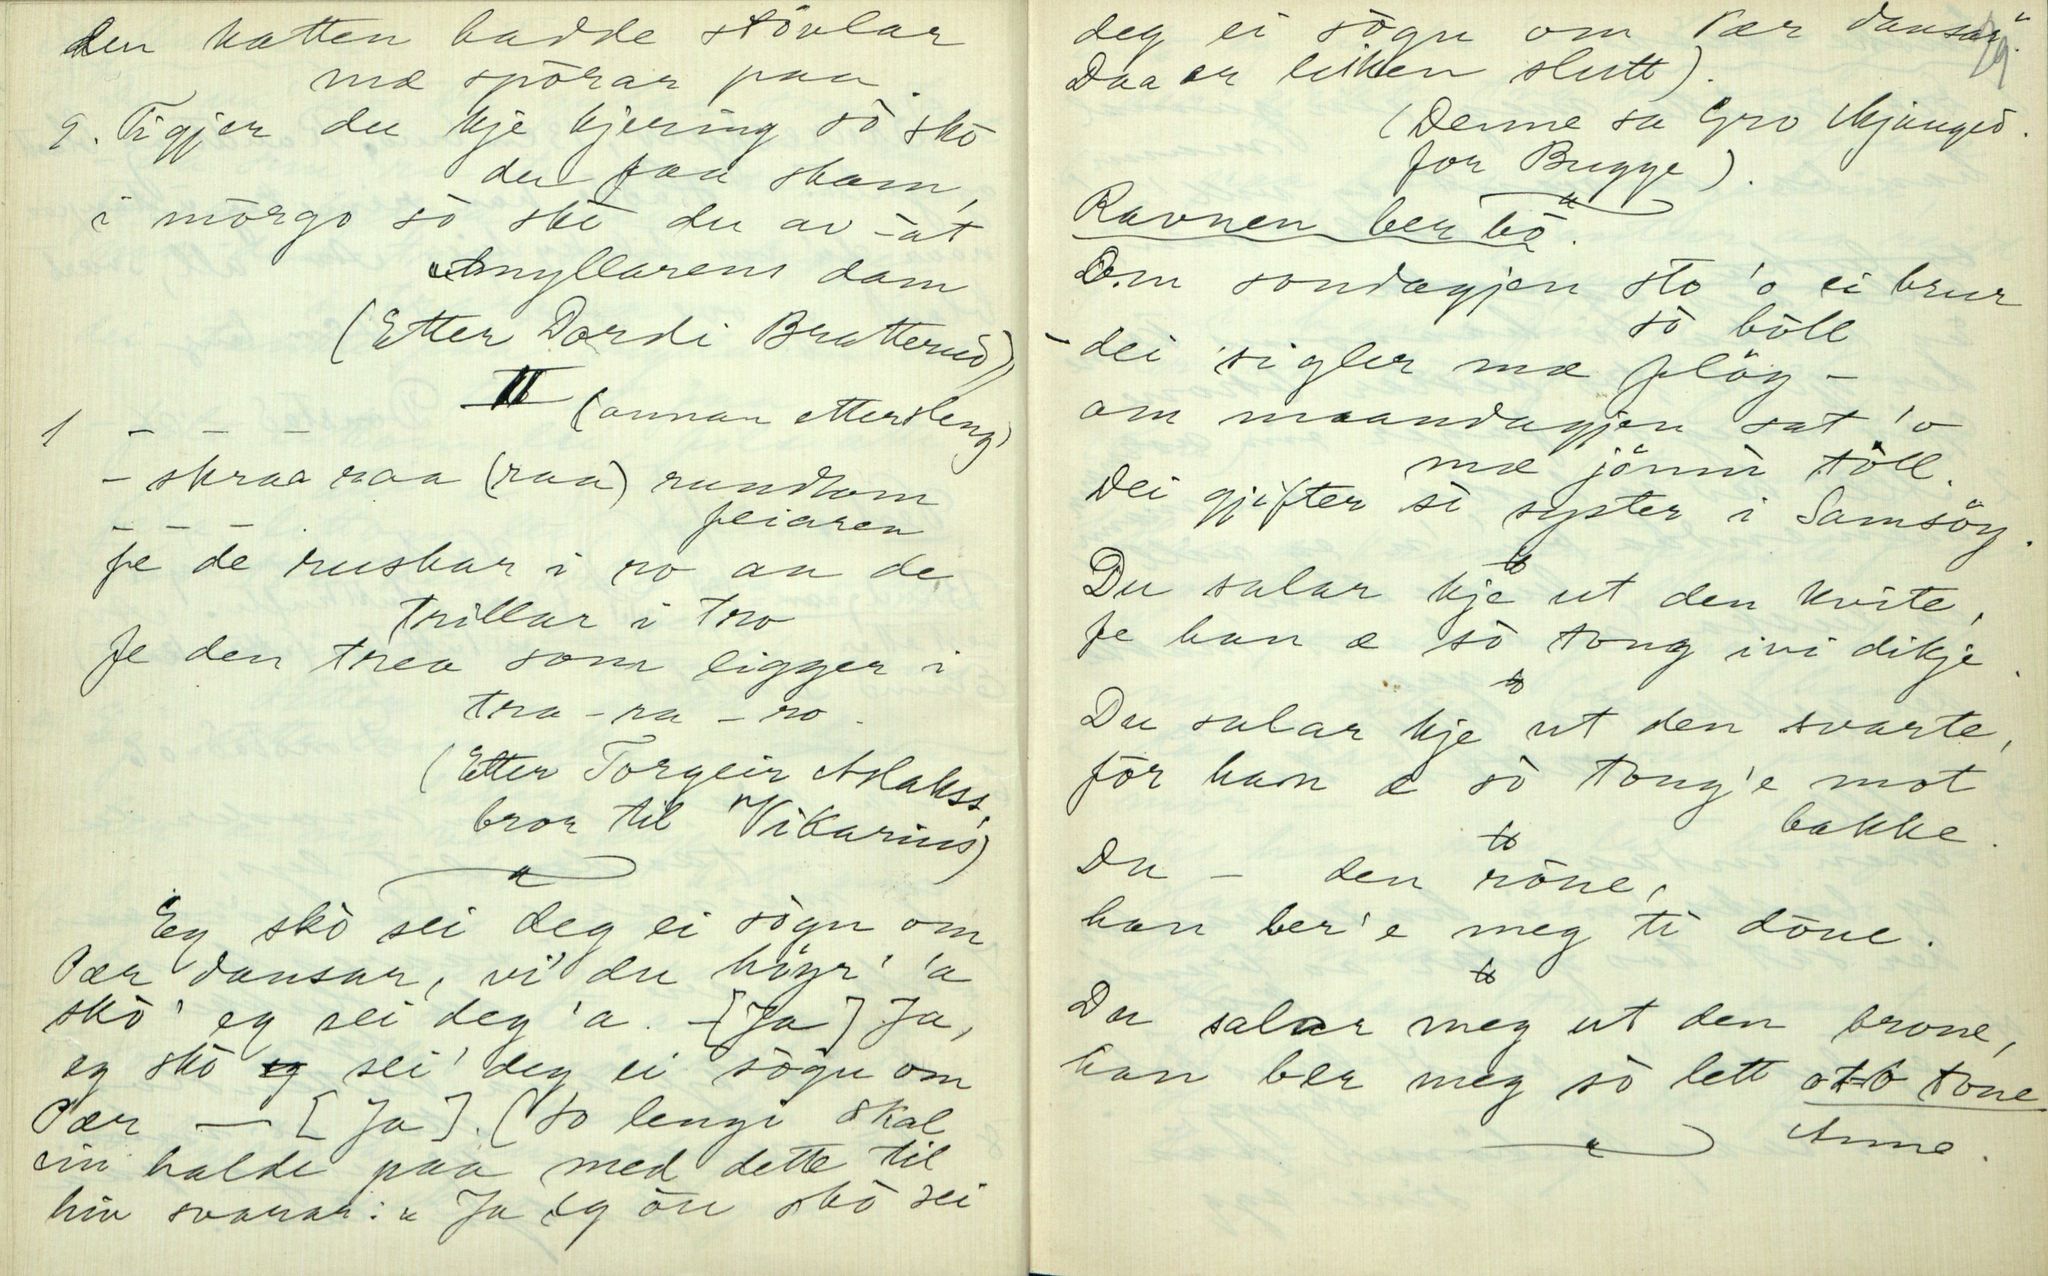 den katten hadde stövlar
mæ spörar paa.
9. Tigjer du kje kjering so sko
du faa skam,
i morgo so sko du av -at
myllarens dam
(Etter Dordi Bratterud)
II (annan ettersleng)
1 – – – –
– skraa raa (raa) rundtom
feiaren
– – –
fe de ruskar i ro an de
trillar i tro
fe den trea som ligger i
tra – ra – ro.
(Etter Torgeir Aslakss.
bror til "Vikarius)
Eg sko sei deg ei sögn om
Pær dansar, vi' du höyr' 'a
sko' eg sei deg 'a. – [Ja] Ja,
eg sko eg sei' deg ei sögn om
Pær — [Ja]. (So lengi skal
ein halde paa med dette til
hin svarar: "Ja eg ön sko sei
deg ei sögn om Pær dansar."
Daa er leiken slutt).
(Denne sa Gro Mjauged.
for Bugge).
Ravnen ber bö.
Om sondagjen sto 'o ei brur
so böll
– dei sigler mæ plöy –
om maandagjen sat 'o
mæ jönni töll.
Dei gjifter si syster i Samsöy.
Du salar kje ut den kvite,
fe han æ so tong ivi dikje.
Du salar kje ut den svarte,
för han æ so tong'e mot
bakke.
Du – den röne,
han ber'e meg ti döne.
Du salar meg ut den brone,
han ber meg so lett otto tone
Anne.